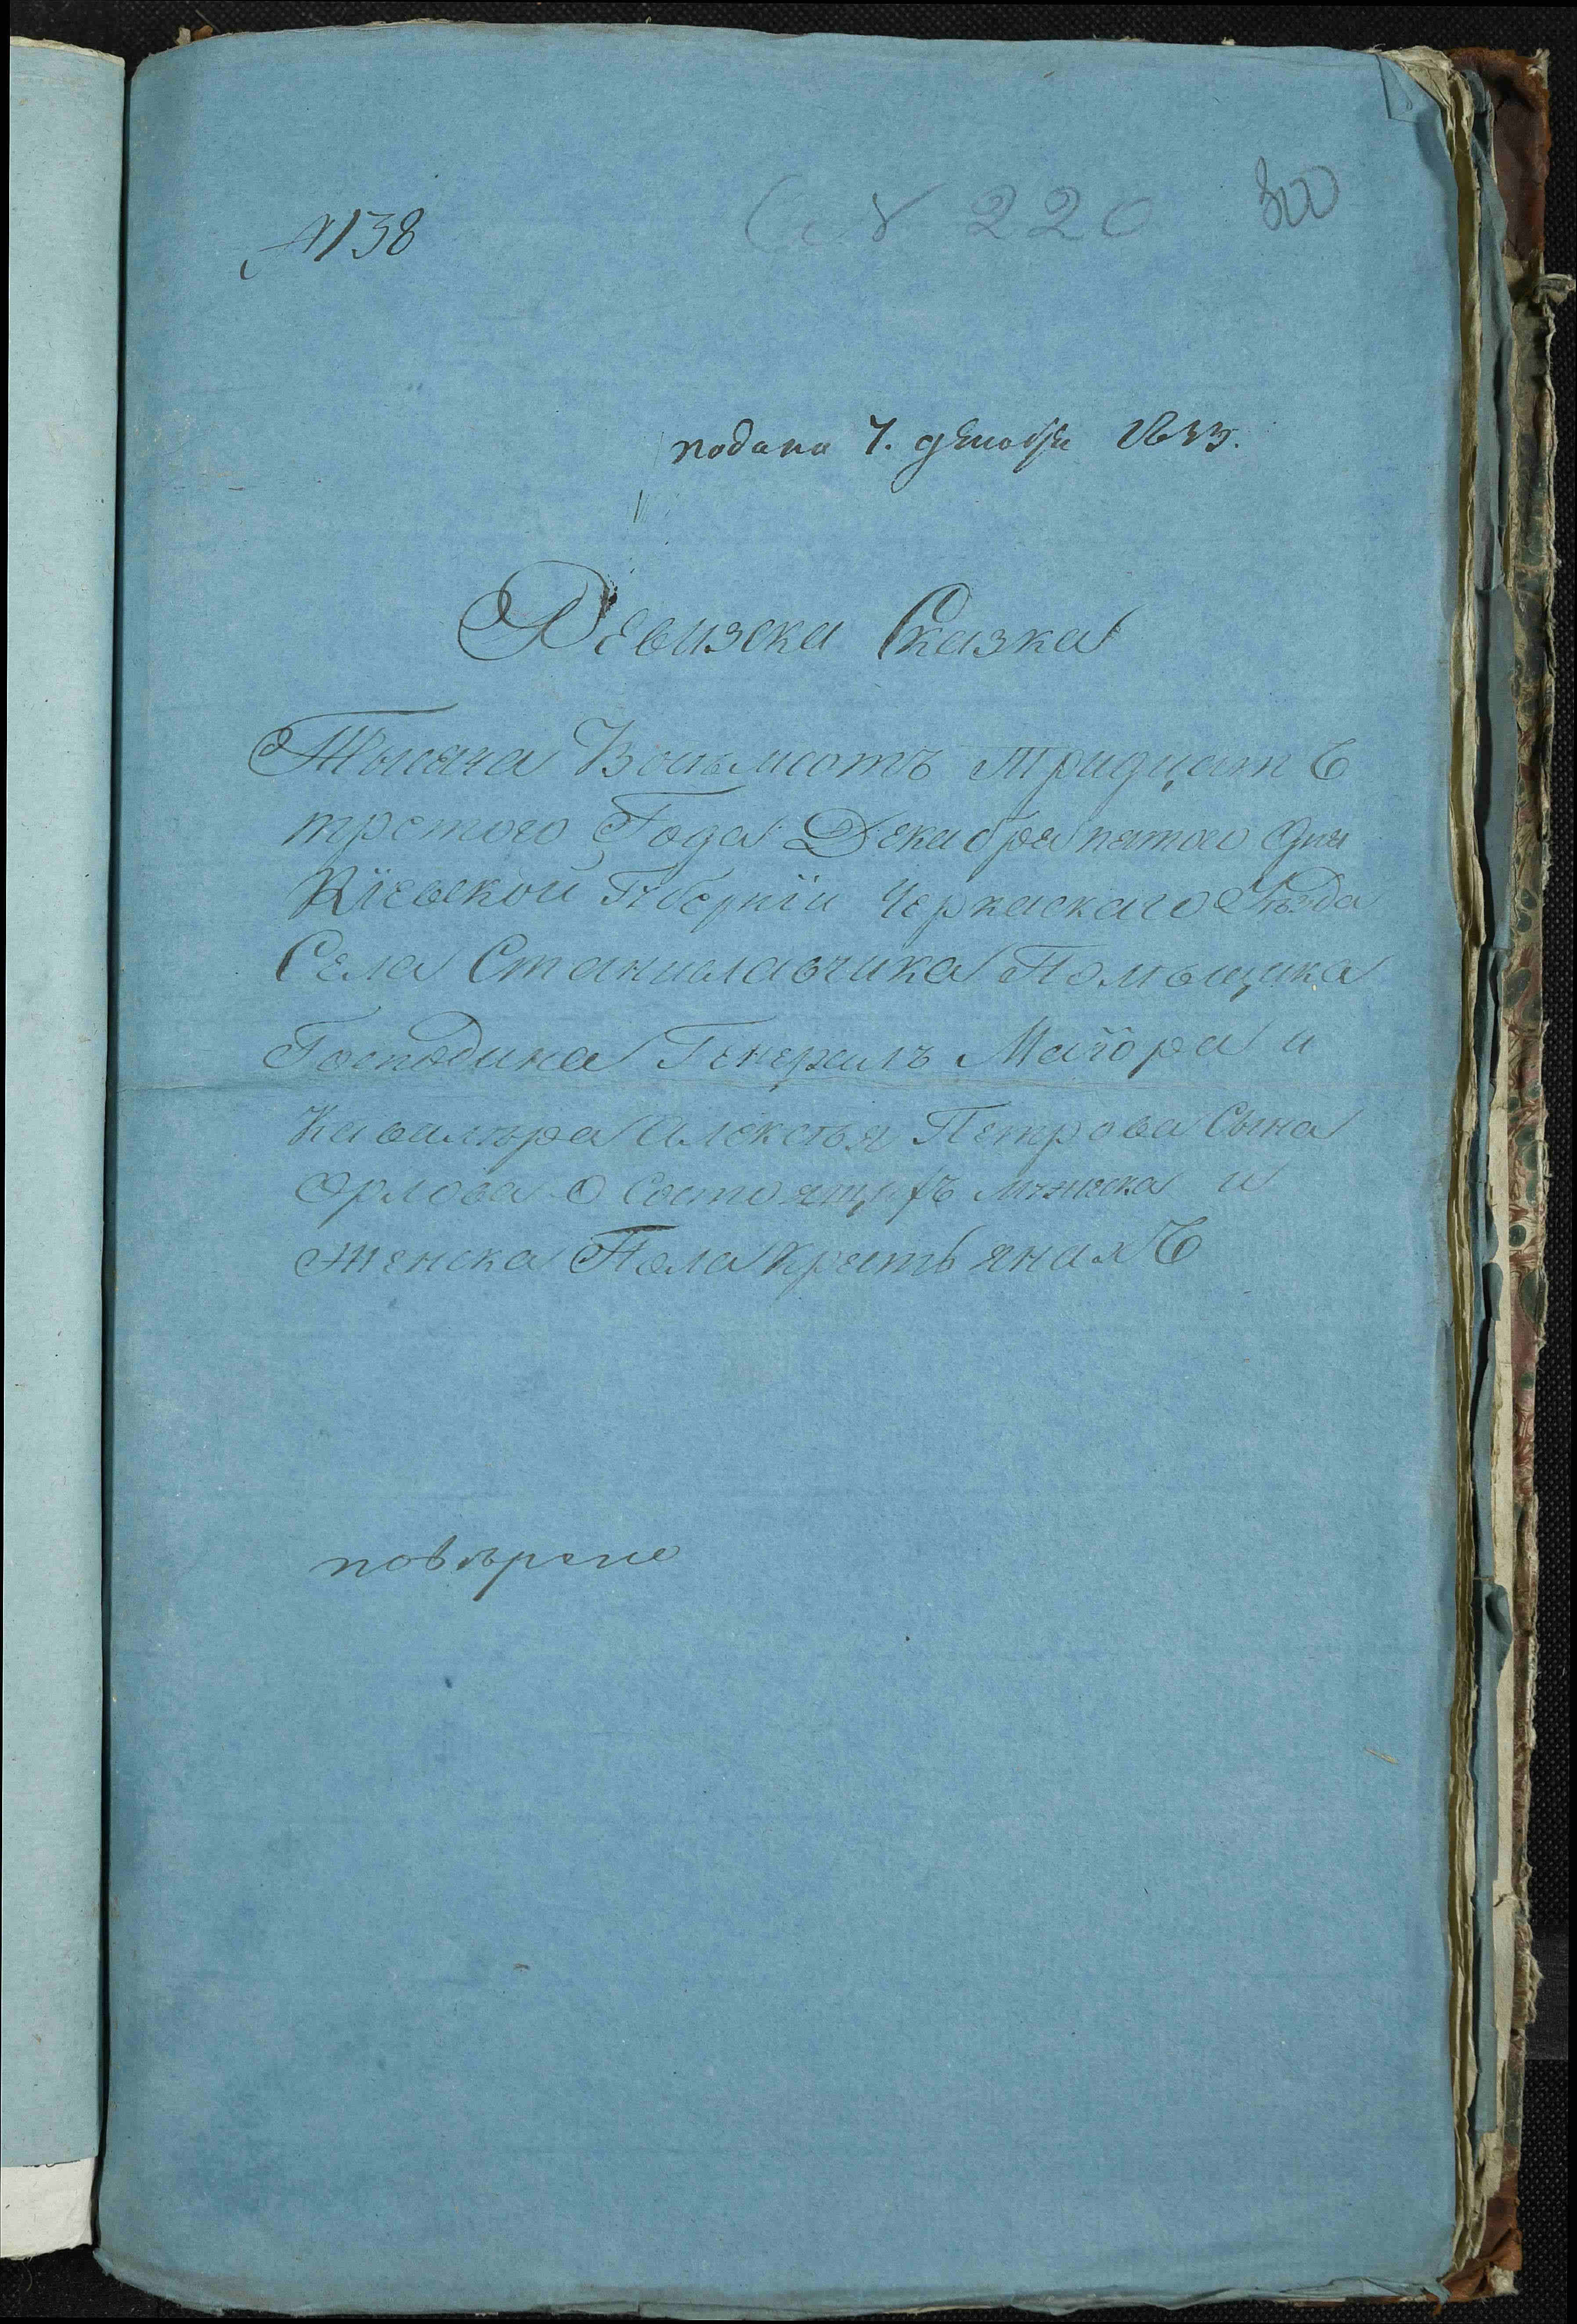 № 138
№ 220
300
подана 7. декабря 1833.
Ревизска Сказка
Тысяча Восьмсотъ Тридцатъ
третого Года Декабря пятого Дня
Кіевской Губерніи Черкаскаго Уѣзда
Села Станиславчика Помѣщика
Господина Генералъ Маіора и
Кавалѣра Алексѣя Петрова Сына
Орлова О Состоящихъ мужеска и
Женска Пола крестьянахъ
повѣрено